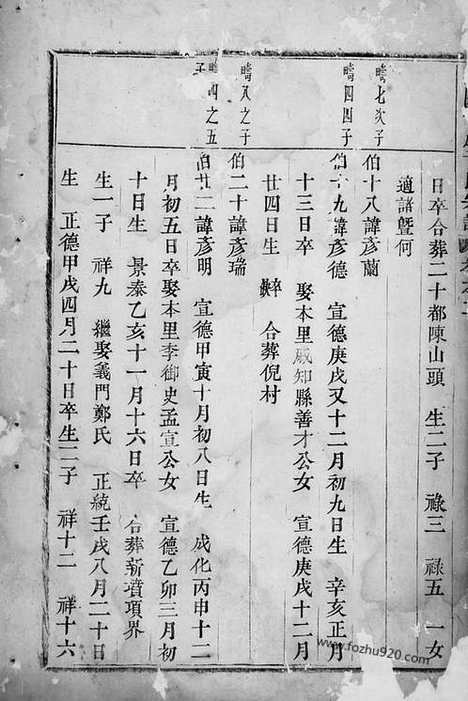 日卒合葬二十都陳山頭　生二子　祿三　祿五　一女
適諸暨何
疇七次子
伯十八諱彦蘭
疇四四子
伯十九諱彦德　宣德庚戌又十二月初九日生　辛亥正月
十三日卒　娶本里戚知縣善才公女　宣德庚戌十二月
廿四日生　卒　合葬倪村
疇八之子
伯二十諱彦瑞
疇四之五子
伯廿二諱彦明　宣德甲寅十月初八日生　成化丙申十二
月初五日卒娶本里李御史孟宣公女　宣德乙卯三月初
十日生　景泰乙亥十一月十六日卒　合葬新墳項界
生一子　祥九　繼娶義門鄭氏　正統壬戌八月二十日
生　正德甲戌四月二十日卒生二子　祥十二　祥十六
www.fozhu920.com